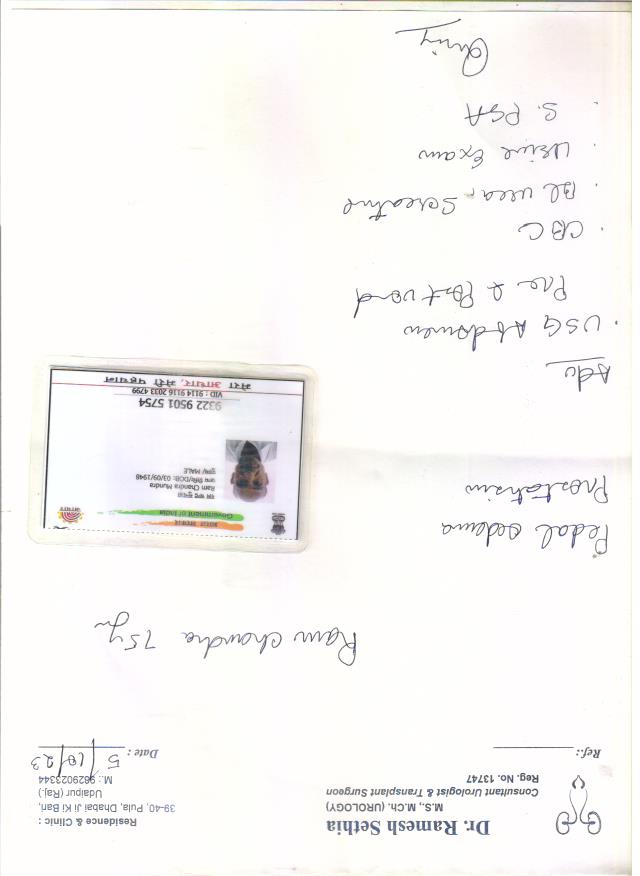 Dr. Ramesh Sethia
M.S., M.Ch. (UROLOGY)
Consultant Urologist & Transplant Surgeon
Reg. No. 13747
Residence & Clinic :
39-40, Pula, Dhabai Ji Ki Bari,
Udaipur (Raj.)
M.: 9829023344
Ref.:
Date : 5/10/23
Ram Chandra 75y
Pedal oedema
Prostatism
भारत सरकार
Government of India
राम चन्द्र मुन्दड़ा
Ram Chandra Mundra
जन्म तिथि/DOB: 03/09/1948
पुरुष/ MALE
9322 9501 5754
VID : 9114 9116 2033 4799
मेरा आधार, मेरी पहचान
Adv
. USG Abdomen
Pre & Post void
. CBC
. Bl urea, Screatine
. Urine Exam
. S. PSA